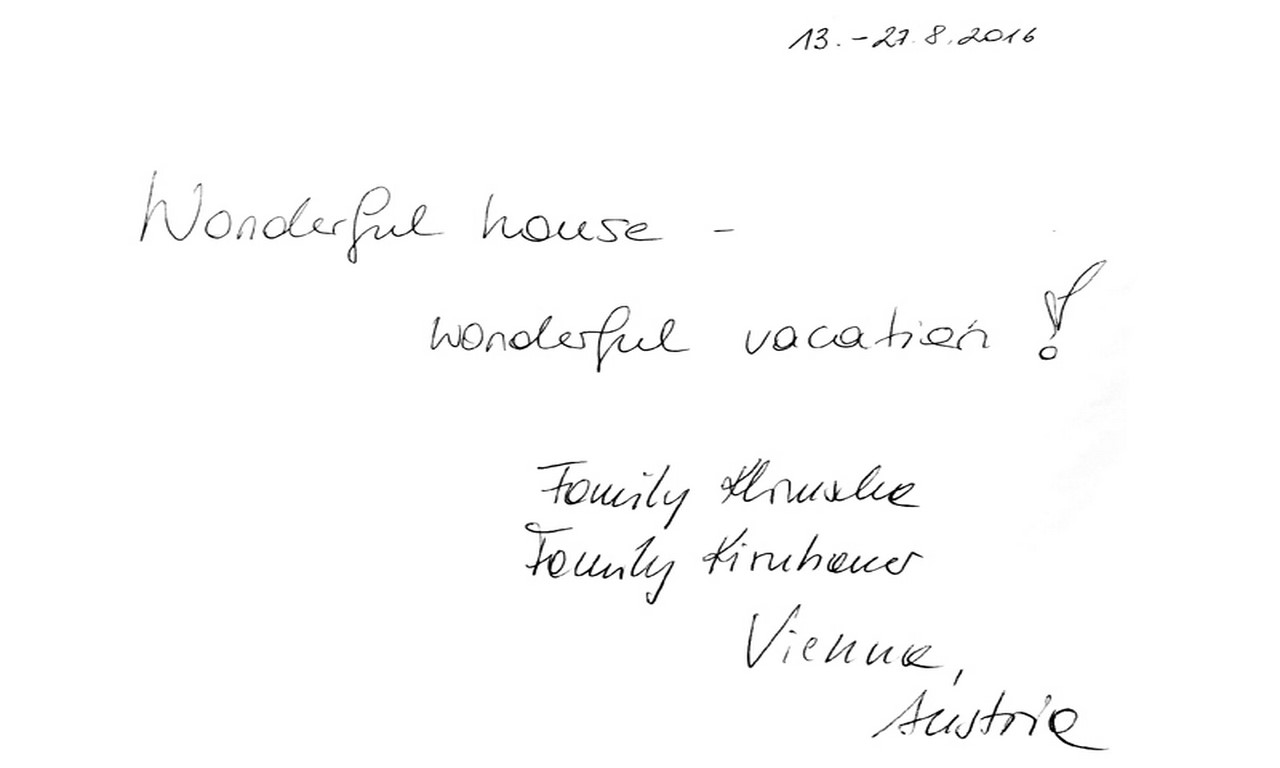 13. - 27. 8. 2016
Wonderful house -
wonderful vacation !
Family
Family
Vienna,
Austria